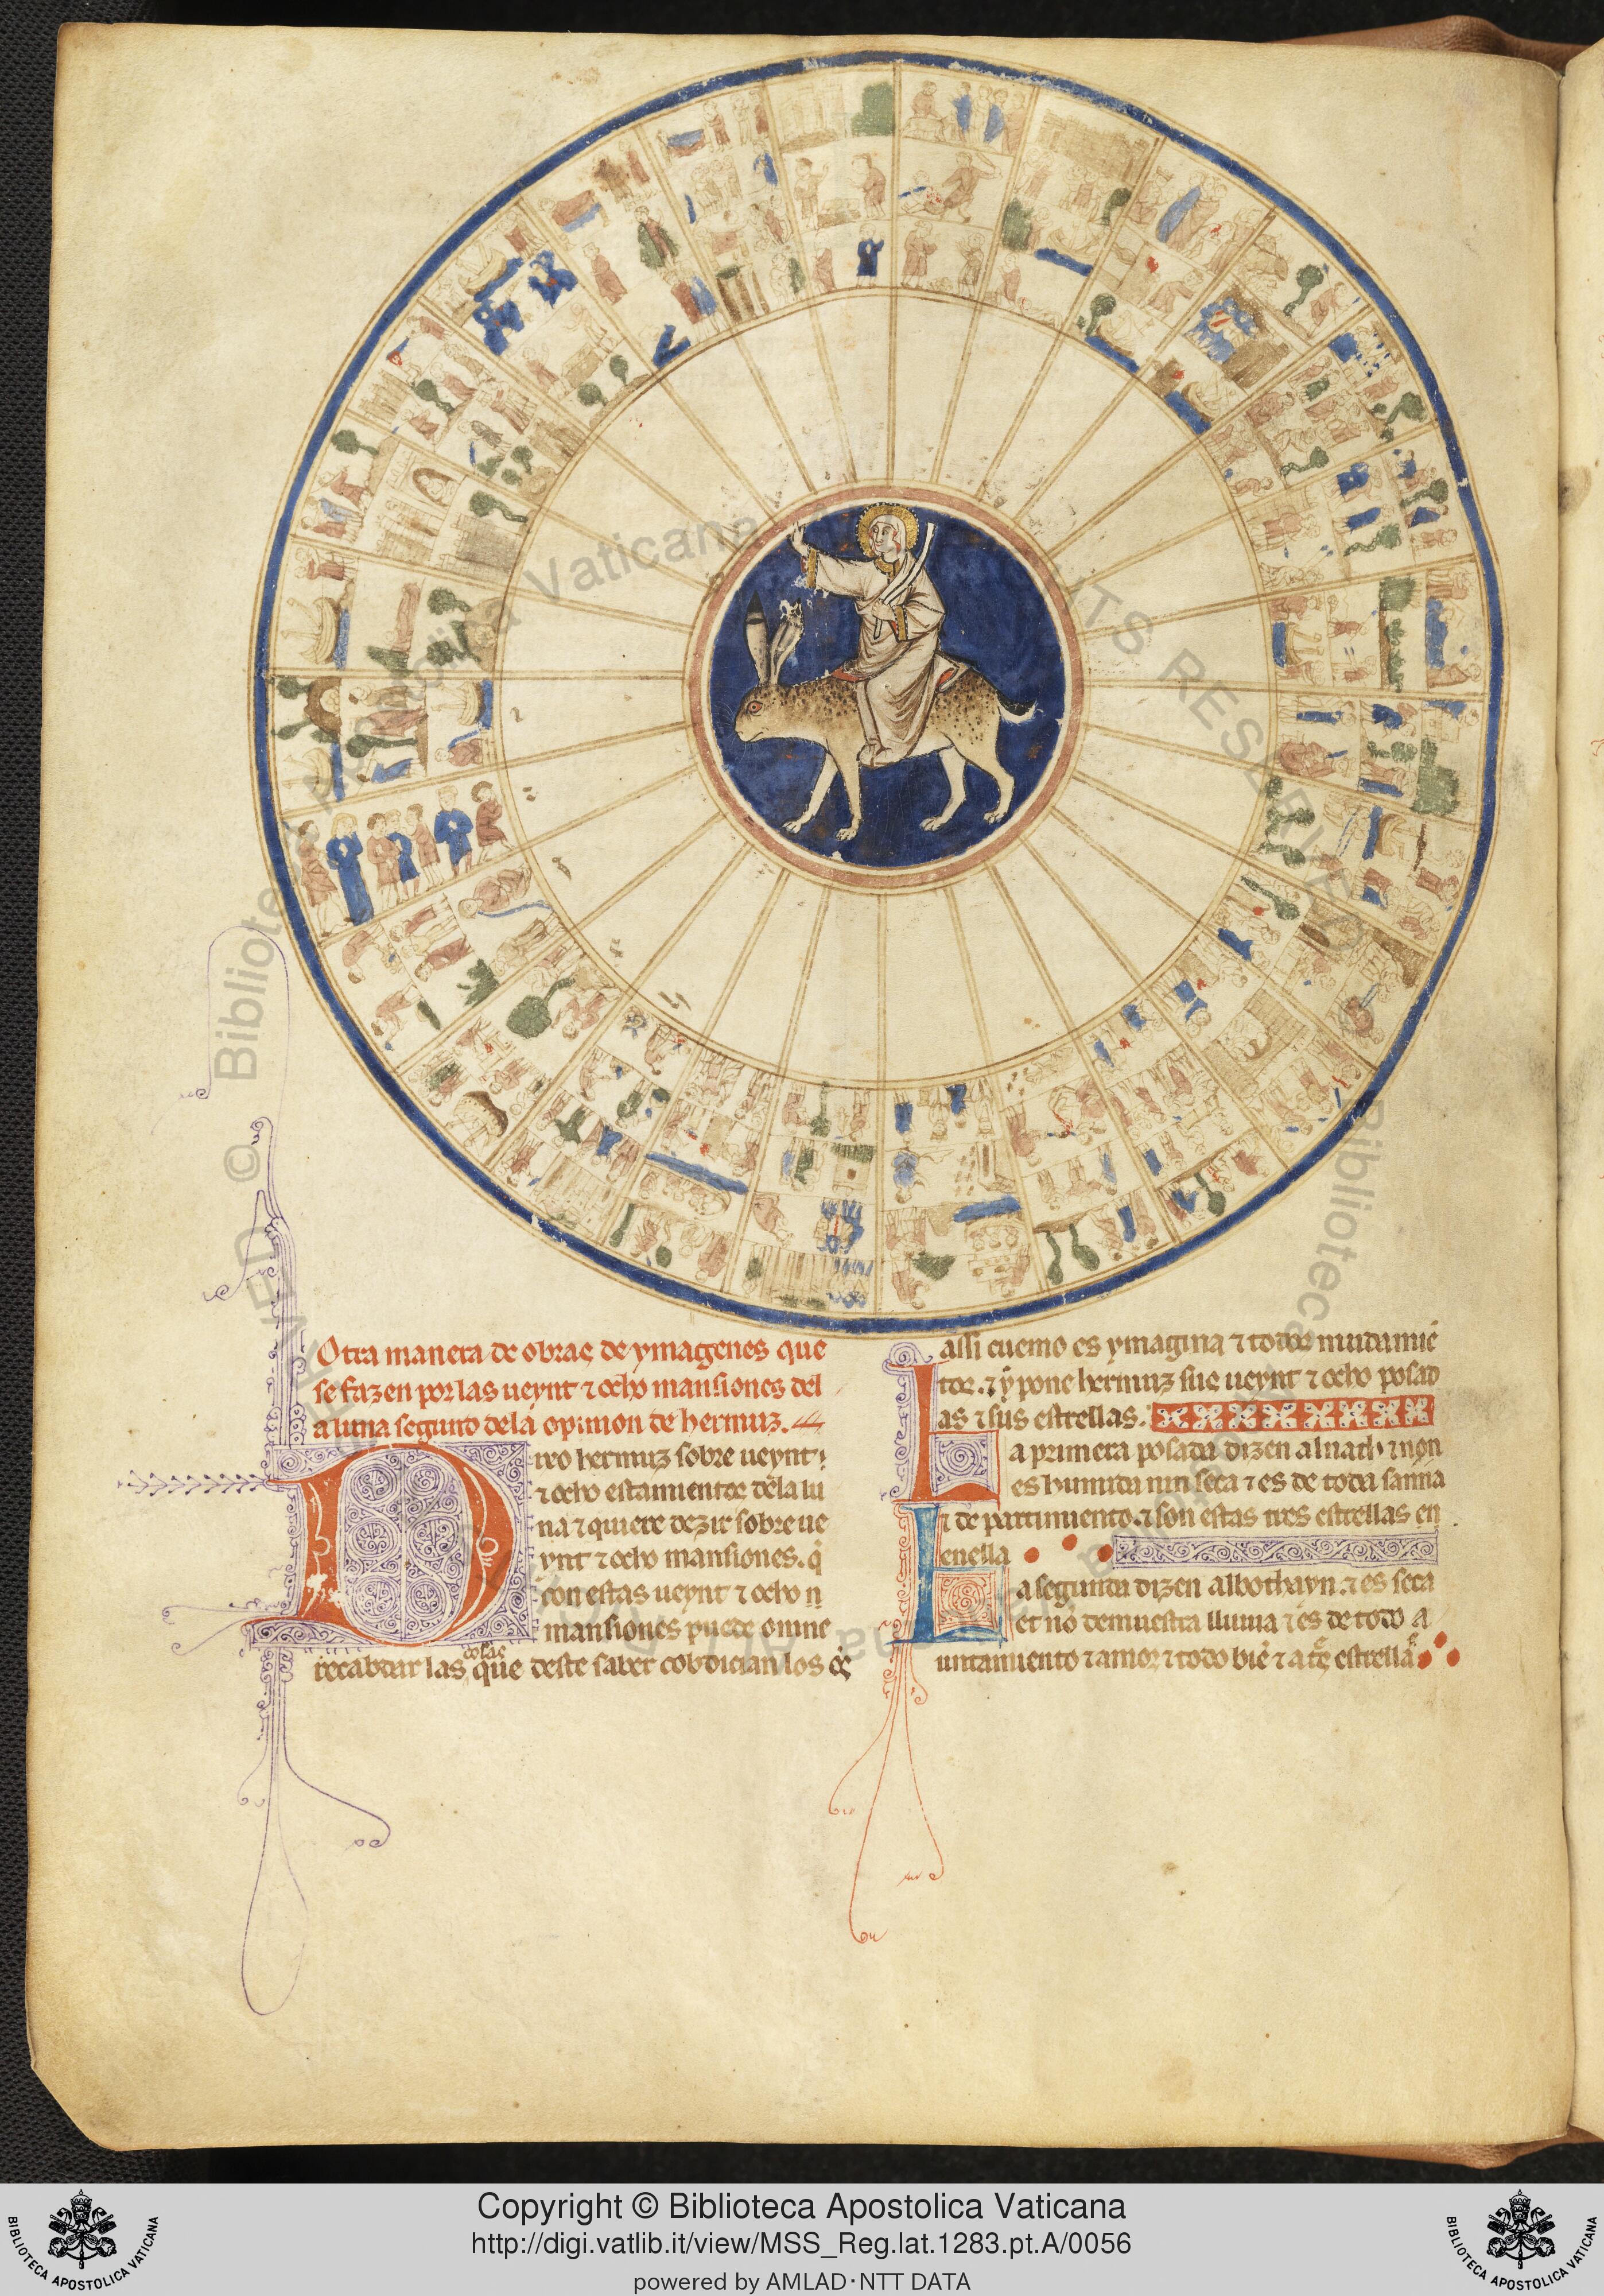 Otra manera de obras de ymagenes que
se fazen por las ueynt ⁊ ocho mansiones del
a luna segund dela opinion de hermuz.
Dixo hermuz sobre ueynt
⁊ ocho estamientos dela lu
na ⁊ quiere dezir sobre ue
ynt ⁊ ocho mansiones. q̇
con estas ueynt ⁊ ocho
mansiones puede omne
recabdar las cosas que deste saber cobdician los
assi cuemo es ymagina ⁊ todos mudamiẽ
tos. ⁊ ẏ pone hermuz sus ueynt ⁊ ocho posad
as ⁊ sus estrellas.
La primera posada dizen alnath ⁊ non
es humida nin seca ⁊ es de toda sanna
⁊ de partimiento. ⁊ son estas tres estrellas en
enella
La segunda dizen albothayn. ⁊ es seca
et nõ demuestra lluuia ⁊ es de todo a
untamiento ⁊ amor ⁊ todo biẽ ⁊ a estrellas
© Biblioteca Apostolica Vaticana
RIGHTS RESERVED © Biblioteca
Copyright © Biblioteca Apostolica Vaticana
http://digi.vatlib.it/view/MSS_Reg.lat.1283.pt.A/0056
powered by AMLAD·NTT DATA
BIBLIOTECA APOSTOLICA VATICANA
BIBLIOTECA APOSTOLICA VATICANA